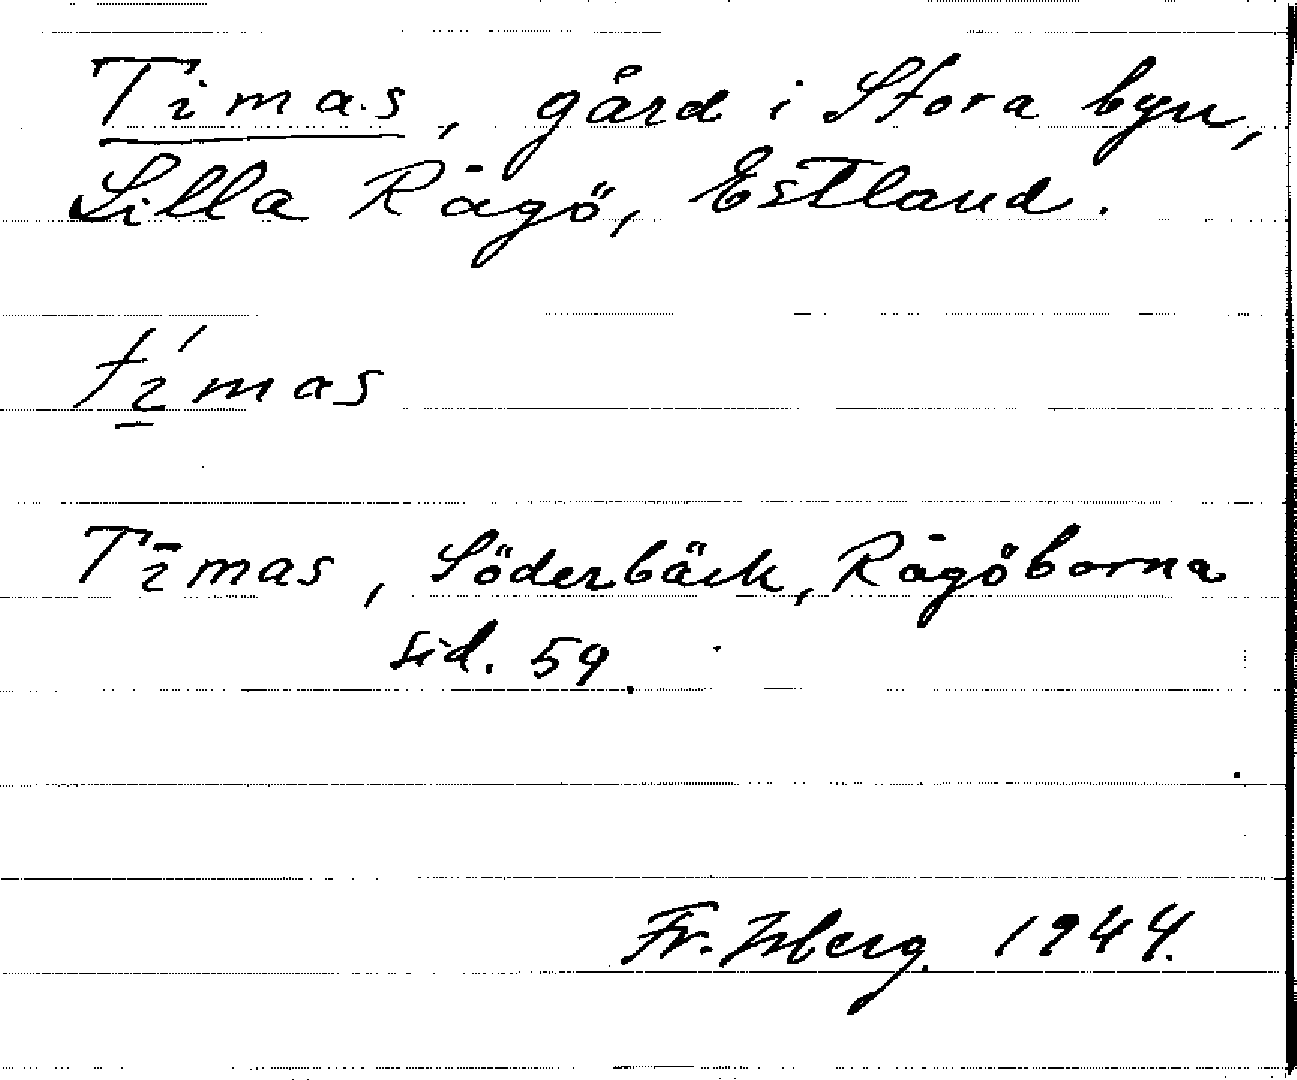 Timas, gård i Stora byn,
Lilla Rågö, Estland.
tí̱mas
Tīmas, Söderbäck, Rågöborna
sid. 59.
Fr. Isberg. 1944.